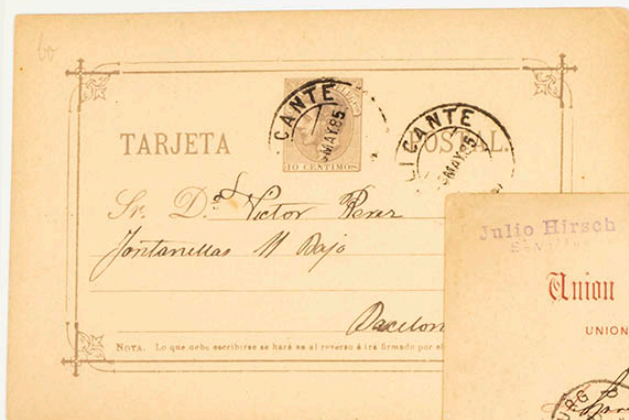 CANTE
MAY 85
10 CENTIMOS
TARJETA POSTAL.
LICANTE
MAY 85
Sr. D. Victor Perez
Fontanellas 11 Bajo
Barcelon
NOTA. Lo que debe escribirse se hará en el reverso é irá firmado por el
Julio Hirsch
Sevilla
Union
UNION
URG